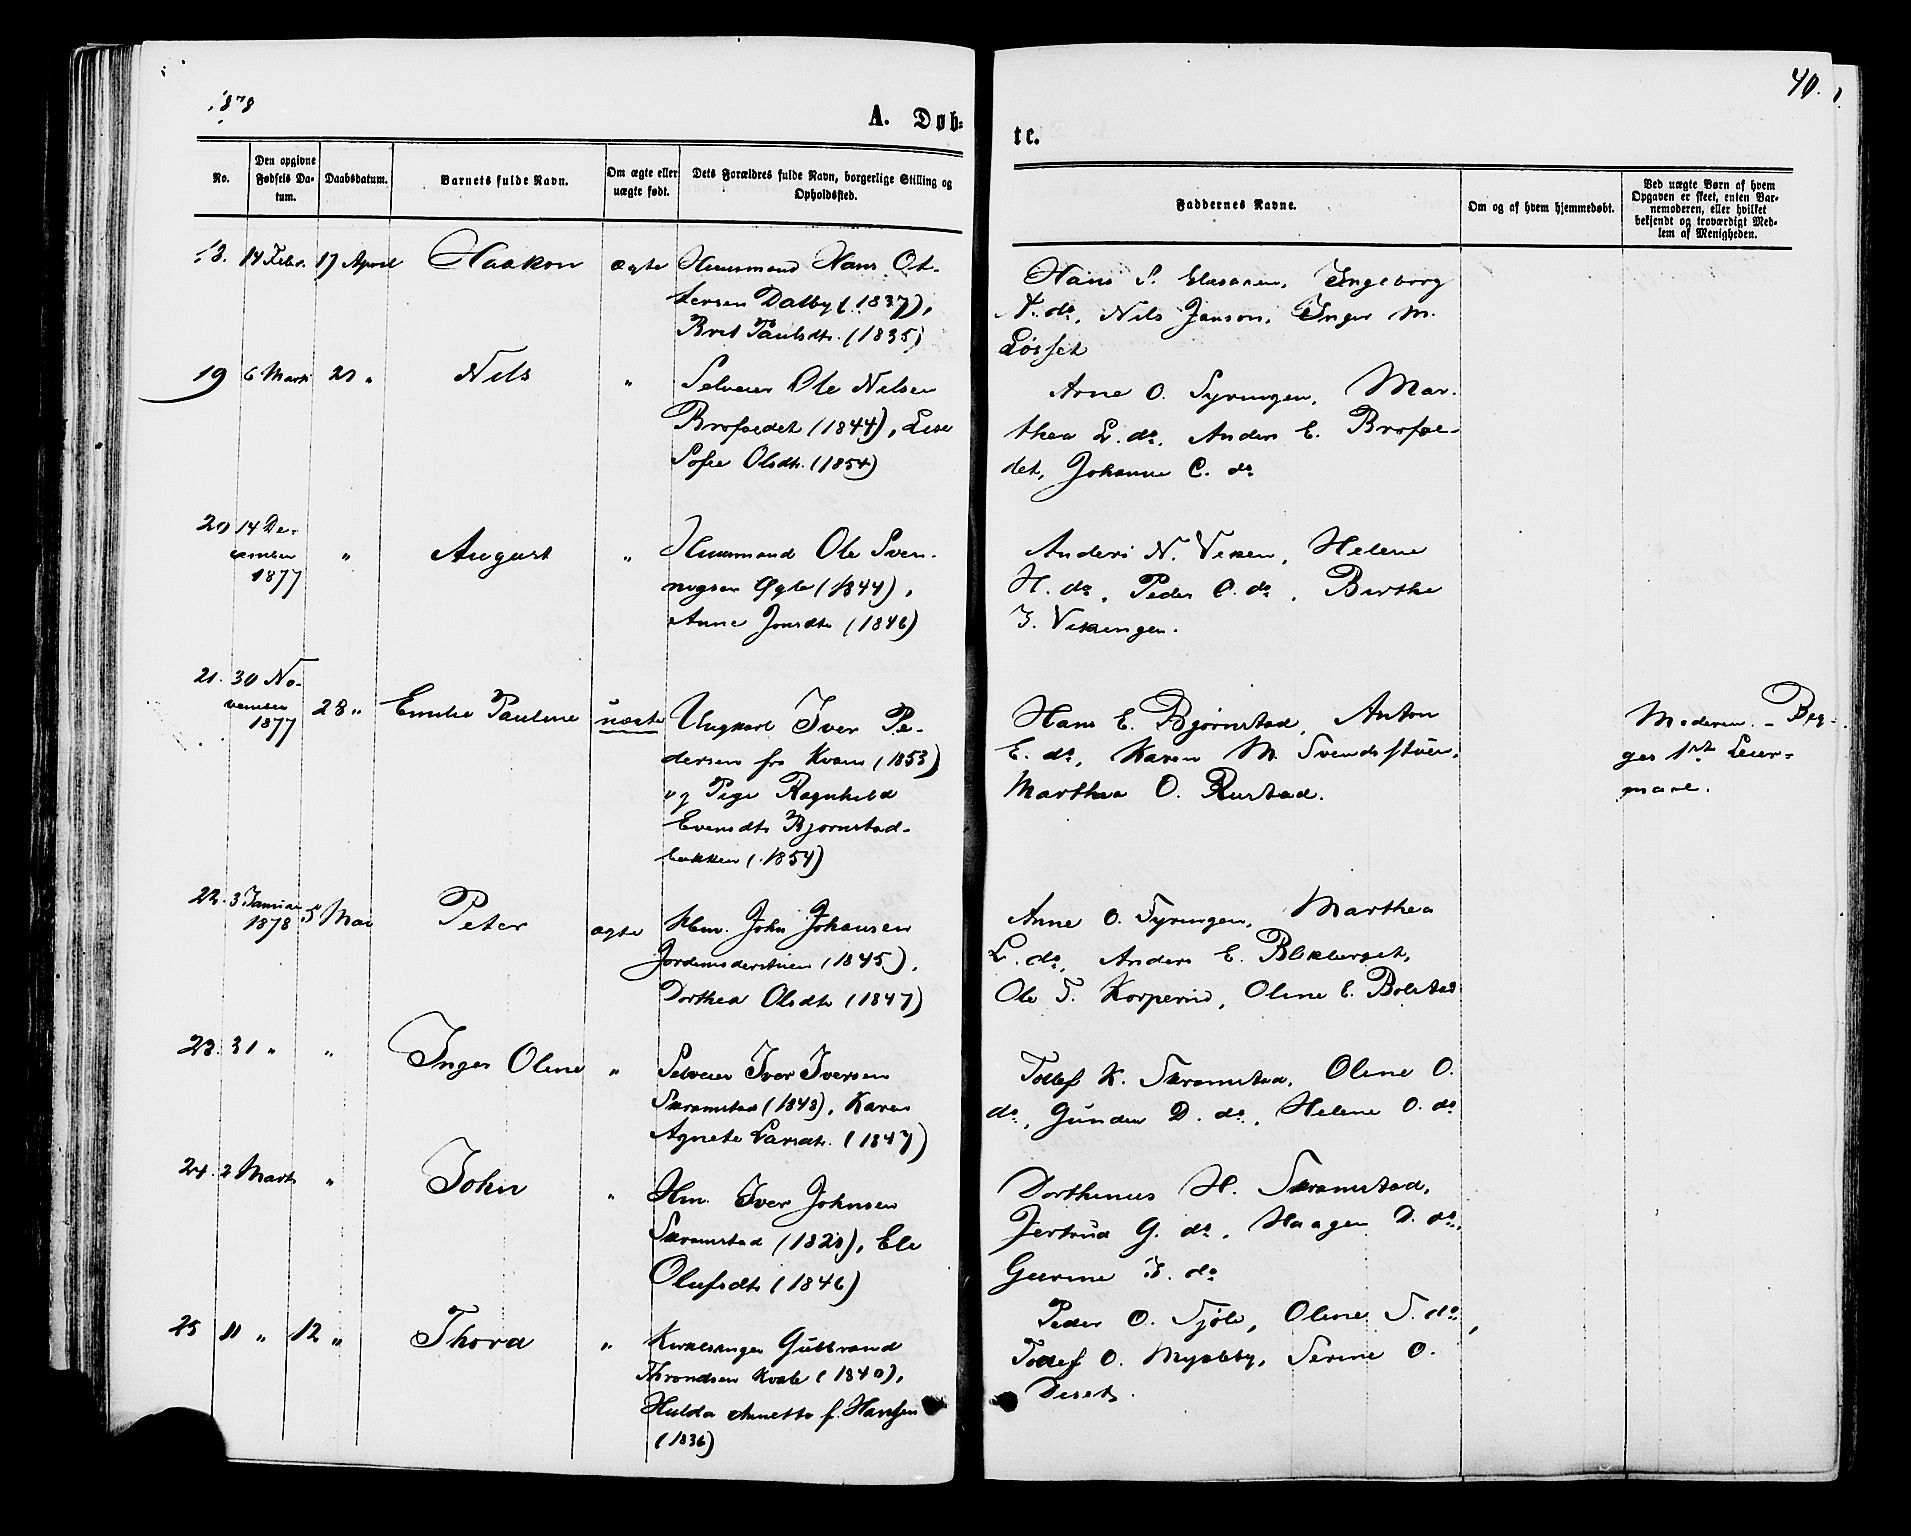 1878
A. Døb-
te.
40.
No.
Den opgivne Fødsels Da-
tum.
Daabsdatum.
Barnets fulde Navn.
Om ægte eller
uægte født.
Dets Forældres fulde Navn, borgerlige Stilling og
Opholdssted.
Faddernes Navne.
Om og af hvem hjemmedøbt.
Ved uægte Børn af hvem
Opgaven er skeet, enten Bar-
nemoderen, eller hvilket
bekjendt og troværdigt Med-
lem af Menigheden.
18. 14 Febr. 17 April Haakon ægte Huusmand Hans Ot-
tersen Dalby (1837),
Brit Paulsdtr. (1835)
Hans S. Ingeborg
A. do, Nils Janson, Inger M.
Løsset
19 6 Marts 21 " Nils " Selveier Ole Nilsen
Brofoedet (1844), Lise
Sofie Olsdtr. (1854)
Arne O. Tyringen, Mar-
thea L. do, Anders E. Brofoe-
det, Johanne C. do
20 14 De-
cember
1877 " August " Huusmand Ole Sven-
nugsen Øgle (1844),
Anne Jonsdtr (1846)
Anders N. Viken, Helene
H. do, Peder O. do, Birthe
I. Vikingen.
21. 30 No-
vember
1877 28 " Emilie Pauline uægte Ungkarl Iver Pe-
dersen fra Kvam (1853)
og Pige Ragnhild
Evensdtr Bjørnstad-
bakken (1854)
Hans E. Bjørnstad, Anton
E. do, Karen M. Svendsstuen,
Marthea O. Rustad.
Moderen. - Beg-
ges 1st Leier-
maal.
22. 3 Januar
1878 5 Mai Peter ægte Hm. John Johansen
Jordemoderstuen (1845),
Dorthea Olsdtr (1847)
Arne O. Tyringen, Marthea
L. do, Anders E. Blikberget,
Ole T. Korperud, Oline E. Bolstad
23. 31 " " Inger Oline " Selveier Iver Iversen
Skramstad (1848), Karen
Agnete Larsdtr. (1847)
Tollef K. Skramstad, Oline O.
do, Gunder D. do, Helene O. do
24. 2 Marts " John " Hm. Iver Johnsen
Skramstad (1828), Eli
Olufsdtr (1846)
Dorthinus H. Skramstad,
Jertrud G. do, Haagen D. do,
Gurine I. do
25 11 " 12 " Thora " Kirkesanger Gulbrand
Throndsen Kvale (1840),
Hulda Annette f. Hansen
(1836)
Peder O. Sjøli, Oline T. do,
Tollef O. Myskeby, Serine O.
Deset.